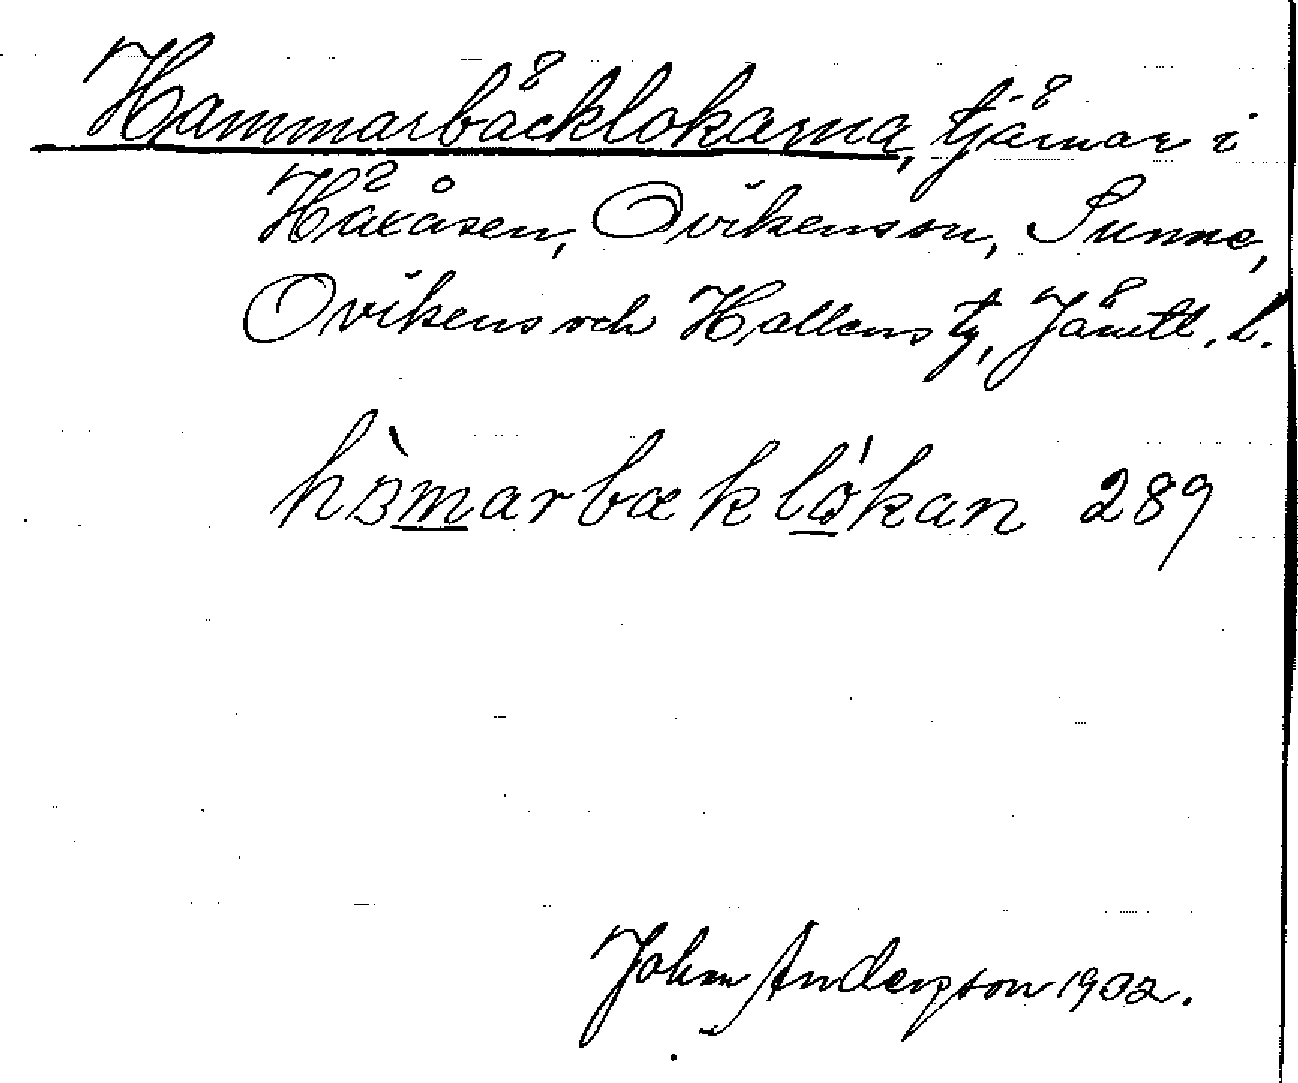 Hammarbäcklokarna, tjärnar i
Häxåsen, Ovikens sn, Sunne,
Ovikens och Hallens tg, Jämtl. l.
289
John Anderson 1902.